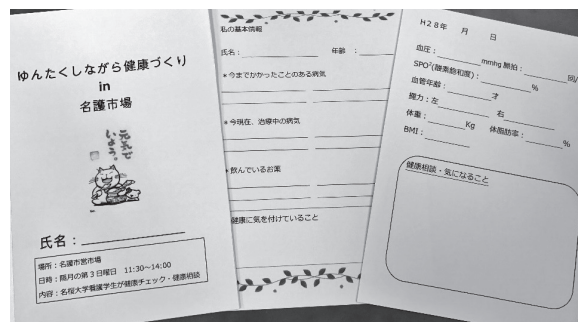 ゆんたくしながら健康づくり
in
名護市場
元気で
いよう。
氏名：
場所：名護市営市場
日時：隔月の第3日曜日　11:30～14:00
内容：名桜大学看護学生が健康チェック・健康相談
私の基本情報
氏名：　　年齢　：
＊今までかかったことのある病気
＊今現在、治療中の病気
＊飲んでいるお薬
健康に気を付けていること
H28年　月　日
血圧：　　mmhg 脈拍：　　回/
SPO²(酸素飽和度)：　　%
血管年齢：　　才
握力：左　　右
体重：　　Kg　体脂肪率：　　%
BMI：
健康相談・気になること